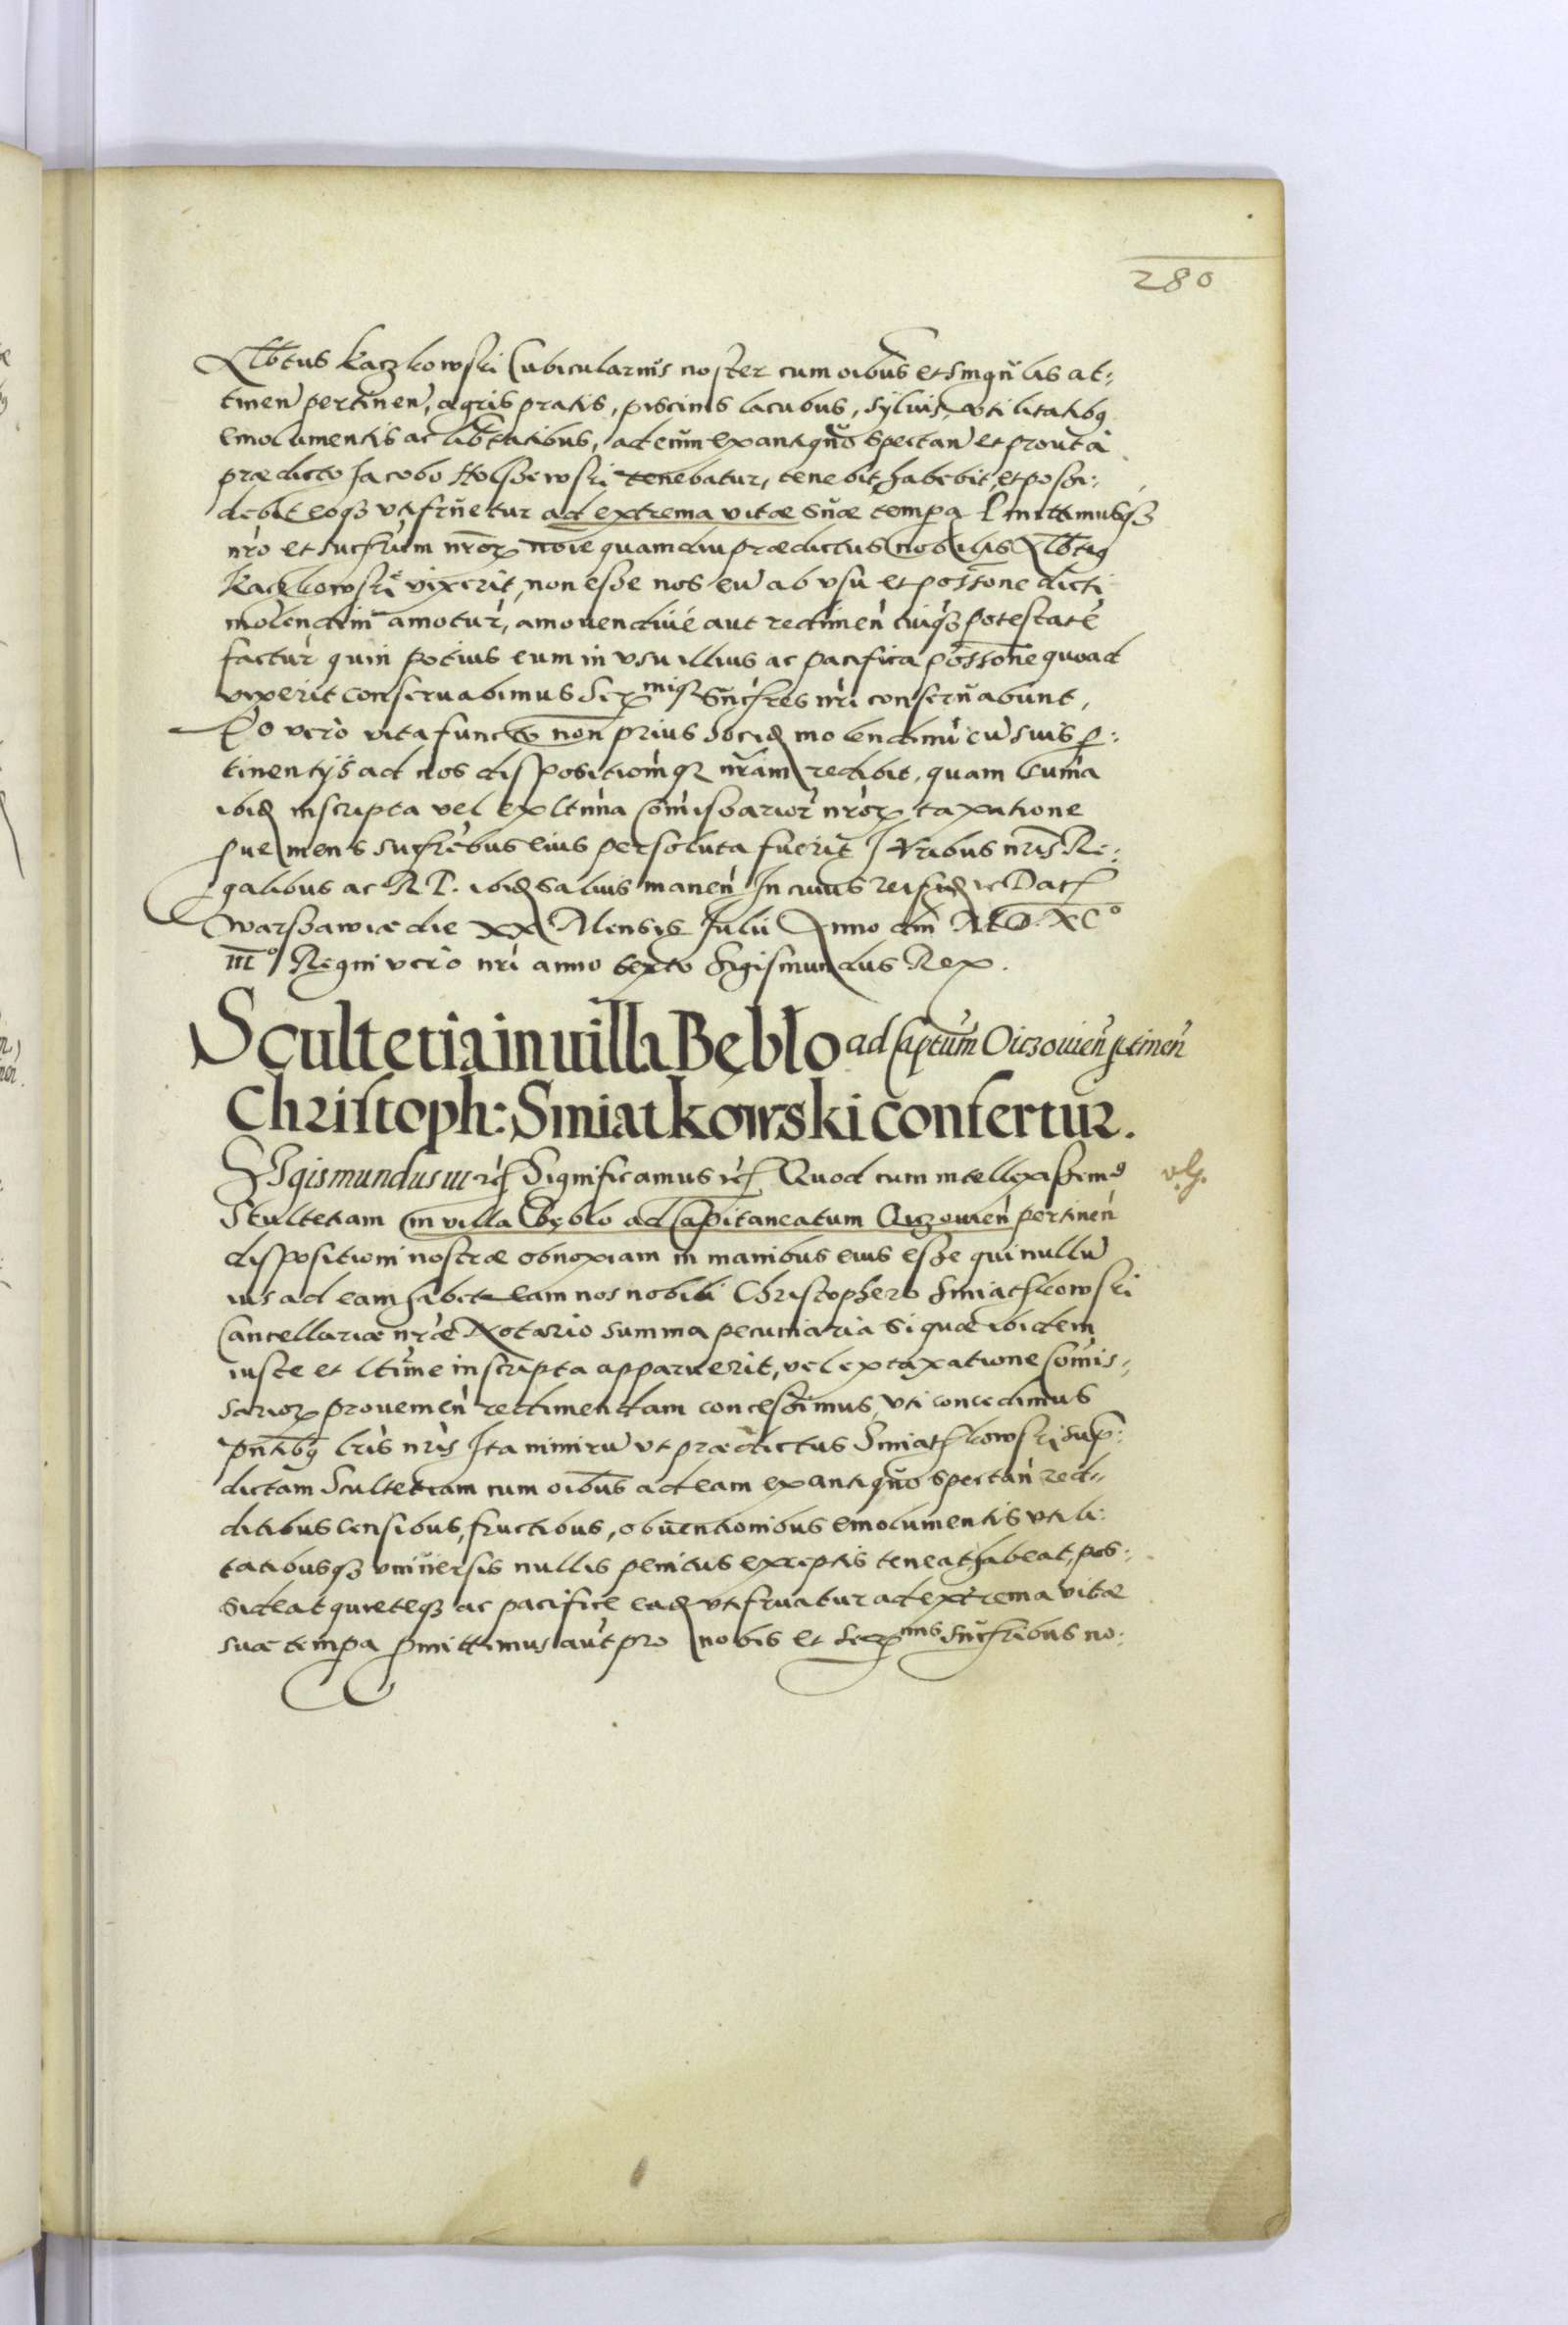 280
Albtus Kaczkowski Cubicularius noster cum oibus et singulis at:
tinen pertinen, agris pratis, piscinis lacubus, sylvis, vtilitatibq
emolumentis ac libtatibus, ad eum ex antiquo spectan et prout a
prædicto Jacobo Kolssewski tenebatur, tenebit habebit, et possi:
debit eoqz vtifruetur ad extrema vitæ suæ tempa Pmittimusqz
nro et succrum nror noie quamdiu prædictus nobilis Albtuq
Kaczkowski vixerit, non esse nos eu ab vsu et possone dicti
molendini amotur, amovendive aut redimen cuiqz potestate
factur quin potius eum in vsu illius ac pacifica possone quoad
vixerit conservabimus Sermiqz Succres nri conservabunt,
Eo vero vita functo non prius molendinu cu suis p:
tinentijs ad nos dispositionqz nram redibit, quam suma
ibid inscripta vel ex ltima Comissarior nror taxatione
pueniens succribus eius persoluta fuerit Juribus nris Re:
galibus ac RP. ibid salvis manen In cuius rei fid ec Dat
Warssawiæ die XX Mensis Julii Anno dni M.D.XCo
IIIo Regni vero nri anno sexto Sigismundus Rex.
Scultetia in villa Bęblo ad Captum Oiczovien ptinen
Christoph: Smiatkowski confertur.
Sigismundus III etc Significamus etc Quod cum intellexissemq
Scultetiam in villa Bęblo ad Capitaneatum Oiczovien pertinen
dispositioni nostræ obnoxiam in manibus eius esse qui nullu
ius ad eam habet eam nos nobili Christophero Smiathkowski
Cancellariæ nræ Notario summa pecuniaria si quæ ibidem
iuste et ltime inscripta apparuerit, vel ex taxatione Comis:
sarior provenien redimendam concessimus vti concedimus
pntibq lris nris Ita nimiru vt prædictus Smiathkowski sup:
dictam Scultetiam cum oibus ad eam ex antiquo spectan red:
ditibus censibus, fructibus, obventionibus emolumentis vtili:
tatibusqz vniversis nullis penitus exceptis teneat habeat, pos:
sideat quieteqz ac pacifice ead vtifruatur ad extrema vitæ
suæ tempa pmittimus aut pro nobis et Sermis succribus no: